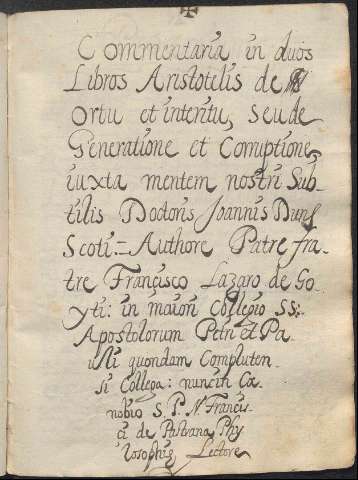 Commentaria in duos
Libros Aristotelis de
Ortu et interitu, seu de
Generatione et Corruptione,
iuxta mentem nostri Sub-
tilis Doctoris Joannis Duns
Scoti:- Authore Patre fra-
tre Francisco Lazaro de Go-
yti: in maiori Collegio SS:
Apostolorum Petri et Pa-
uli quondam Compluten-
si Collega: nunc in Cæ-
nobio S. P. N. Francis-
ci de Pastrana Phy-
losophiæ Lectore